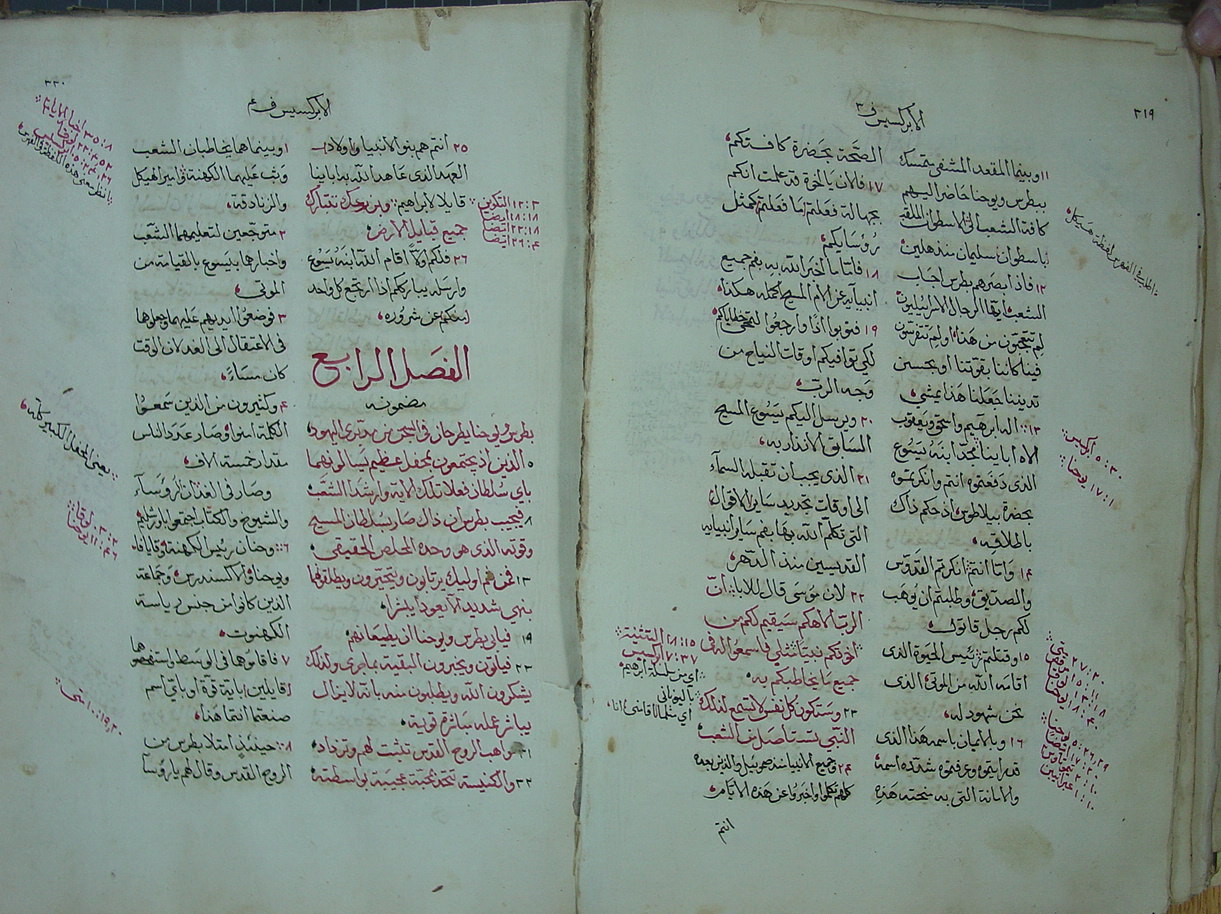 ٣١٩
الابركسيس ف ٣
١١ وبينما المقعد المشفى يتمسك
ببطرس ويوحنا حاضر اليهم
كافة الشعب الى الاسطوان الملقب
باسطوان سليمان منذهلين
١٢ فاذ ابصرهم بطرس اجاب
الشعب ايها الرجال الاسراييليون
لم تتعجبون من هذا او لم تتفرسون
فينا كاننا بقوتنا او بحسن
تديننا جعلنا هذا يمشي
١٣ اله ابرهيم واسحق ويعقوب
الاه اباينا مجد ابنه يسوع
الذي دفعتموه انتم وانكرتموه
بحضرة بيلاطوس اذ حكم ذاك
باطلاقه
١٤ واما انتم انكرتم القدوس
والصديق وطلبتم ان يوهب
لكم رجل قاتول
١٥ وقتلتم رييس الحيوة الذي
اقامه الله من الموتى الذي
نحن شهود له
١٦ وبالايمان باسمه هذا الذي
قد رايتموه وعرفتموه شدده اسمه
والامانة التي به منحته هذه
الصحة بحضرة كافتكم
١٧ فالان يا اخوة قد علمت انكم
بجهالة فعلتم ما فعلتم كمثل
روساكم
١٨ فاما ما اخبر الله به بفم جميع
انبيايه عن الام المسيح كمله هكذا
١٩ فتوبوا اذا وارجعوا لتمحى خطاياكم
لكي توافيكم اوقات النياح من
وجه الرب
٢٠ ويرسل اليكم يسوع المسيح
السابق الانذار به
٢١ الذي يجب ان تقبله السماء
الى اوقات تجديد ساير الاقوال
التي تكلم الله بها بفم ساير انبيايه
القديسين منذ الدهر
٢٢ لان موسى قال للابا ان
الرب الاهكم سيقيم لكم من
اخوتكم نبيا مثلي فاسمعوا له في
جميع ما يخاطبكم به
٢٣ وستكون كل نفس لا تسمع لذلك
النبي تستاصل من الشعب
٢٤ وجميع الانبيا منذ صمويل والذين بعده
كلهم تكلموا واخبروا عن هذه الايام
انتم
١٥ : ١٨ التثنية
٣٧ : ٧ ابركسيس
٣٠ : ٥ ابركسيس
١ : ١٧ يوحنا
٣٣٠
الابركسيس ف ٤
٢٥ انتم هم بنو الانبيا واولاد
العهد الذي عاهد الله به اباينا
قايلا لابراهيم وبزرعك تتبارك
جميع قبايل الارض
٢٦ فلكم اولا اقام الله ابنه يسوع
وارسله يبارككم اذا ارتجع كل واحد
منكم عن شروره
٣ : ١٢ التكوين
١٨ : ١٨ ايضا
١٨ : ٢٢ ايضا
٤ : ٢٦ ايضا
الفصل الرابع
مضمونه
بطرس ويوحنا يطرحان في السجن من مدبري اليهود
٥ الذين اذ يجتمعون بمحفل عظيم يسالونهما
باي سلطان فعلا تلك الاية وارشدا الشعب
٨ فيجيب بطرس ان ذاك صار بسلطان المسيح
وقوته الذي هو وحده المخلص الحقيقي
١٣ فمن ثم اوليك يرتابون ويتحيرون ويطلقونهما
بنهي شديد الا يعودا يبشرا
١٩ فيابى بطرس ويوحنا ان يطيعانهم
٢٣ فياتون ويخبرون البقية بما جرى ولذلك
يشكرون الله ويطلبون منه بانه لا يزال
يباشر عمله مباشرة قوية
٣١ مواهب الروح القدس تثبت لهم وتزداد
٣٢ والكنيسة تتحد بمحبة عجيبة بواسطته
١ وبينما هما يخاطبان الشعب
وثب عليهما الكهنة وامرا الهيكل
والزنادقة
٢ متوجعين لتعليمهما الشعب
واخبارهما بيسوع بالقيامة من
الموتى
٣ فوضعوا ايديهم عليهما وجعلوهما
في الاعتقال الى الغد لان الوقت
كان مساء
٤ وكثيرون من الذين سمعوا
الكلمة امنوا وصار عدد الناس
مقدار خمسة الاف
٥ وصار في الغد ان الروساء
والشيوخ والكتاب اجتمعوا باورشليم
٦ وحنان رييس الكهنة وقيافا
ويوحنا والاكسندرس وجماعة
الذين كانوا من جنس رياسة
الكهنوت
٧ فاقاموهما في الوسط واستفهموهما
قايلين باية قوة او باي اسم
صنعتما انتما هذا
٨ حينيذ امتلا بطرس من
الروح القدس وقال لهم يا روسا
يعني المحفل الكبير كله